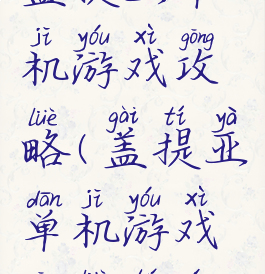 jī yóu xì gōng
机游戏攻
lüè gài tí yà
略(盖提亚
dān jī yóu xì
单机游戏